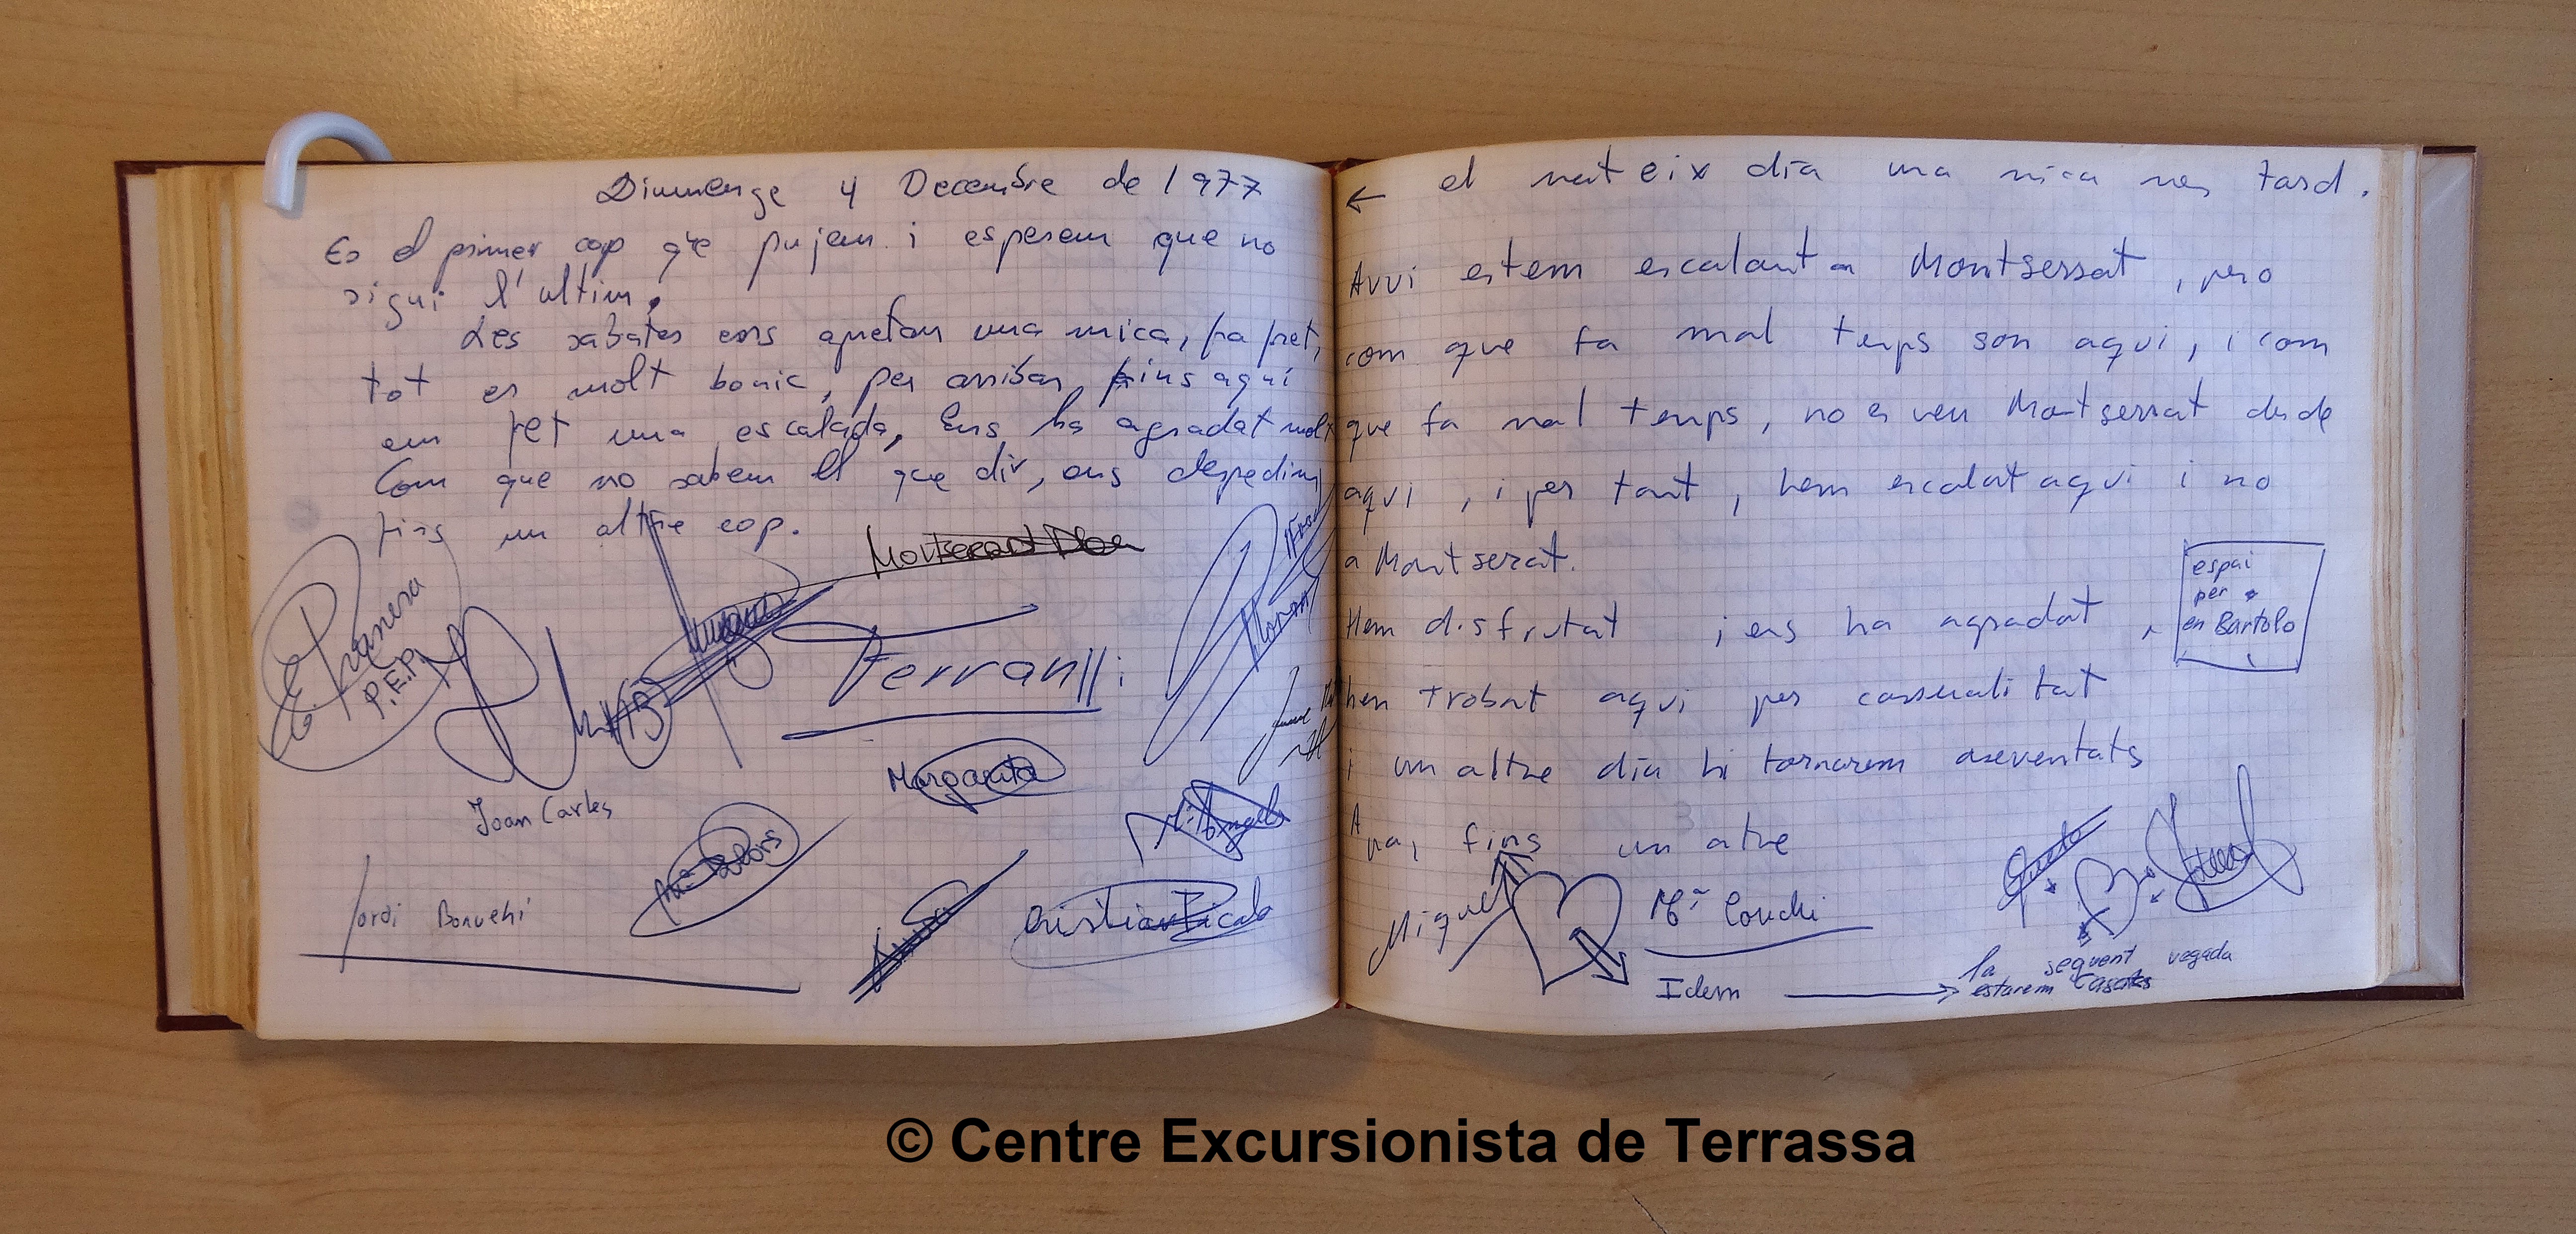 Diumenge 4 Decembre de 1977
Es el primer cop q'e pujem i esperem que no
sigui l'ultim.
Les sabates ens apretan una mica, fa fret,
tot es molt bonic, per arribar fins aquí
em fet una escalada, Ens ha agradat molt
Com que no sabem el que dir, ens despedim
fins un altre cop.
Montserrat
Planera
P.E.P.
Ferran
Margarita
Joan Carles
Mª Dolors
Mª Angels
Jordi Bonvehi
Cristian Picola
← el mateix dia una mica mes tard.
Avui estem escalant a Montserrat, pero
com que fa mal temps son aqui, i com
que fa mal temps, no es veu Montserrat desde
aqui, i per tant, hem escalat aqui i no
a Montserat.
Hem disfrutat i ens ha agradat,
espai
per
en Bartolo
hem trobat aqui per cassualitat
i un altre dia hi tornarem aseventats
Apa, fins un atre
Miquel
Mª Conchi
Idem
la seguent vegada
estarem Casats
© Centre Excursionista de Terrassa